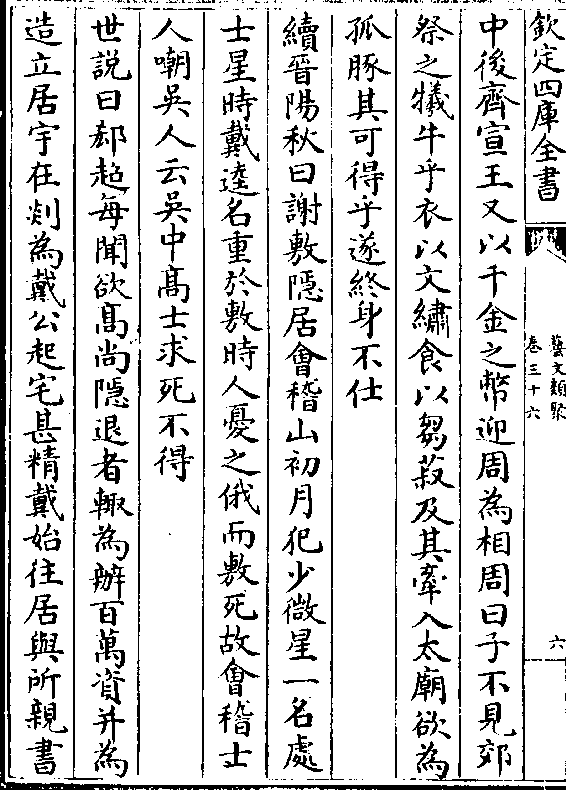 欽定四庫全書
藝文類聚
卷三十六
六
中後齊宣王又以千金之幣迎周為相周曰子不見郊
祭之犧牛乎衣以文繡食以芻菽及其牽入太廟欲為
孤豚其可得乎遂終身不仕
續晉陽秋曰謝敷隱居會稽山初月犯少微星一名處
士星時戴逵名重於敷時人憂之俄而敷死故會稽士
人嘲吳人云吳中髙士求死不得
世説曰郄超每聞欲髙尚隱退者輙為辦百萬資并為
造立居宇在剡為戴公起宅甚精戴始往居與所親書